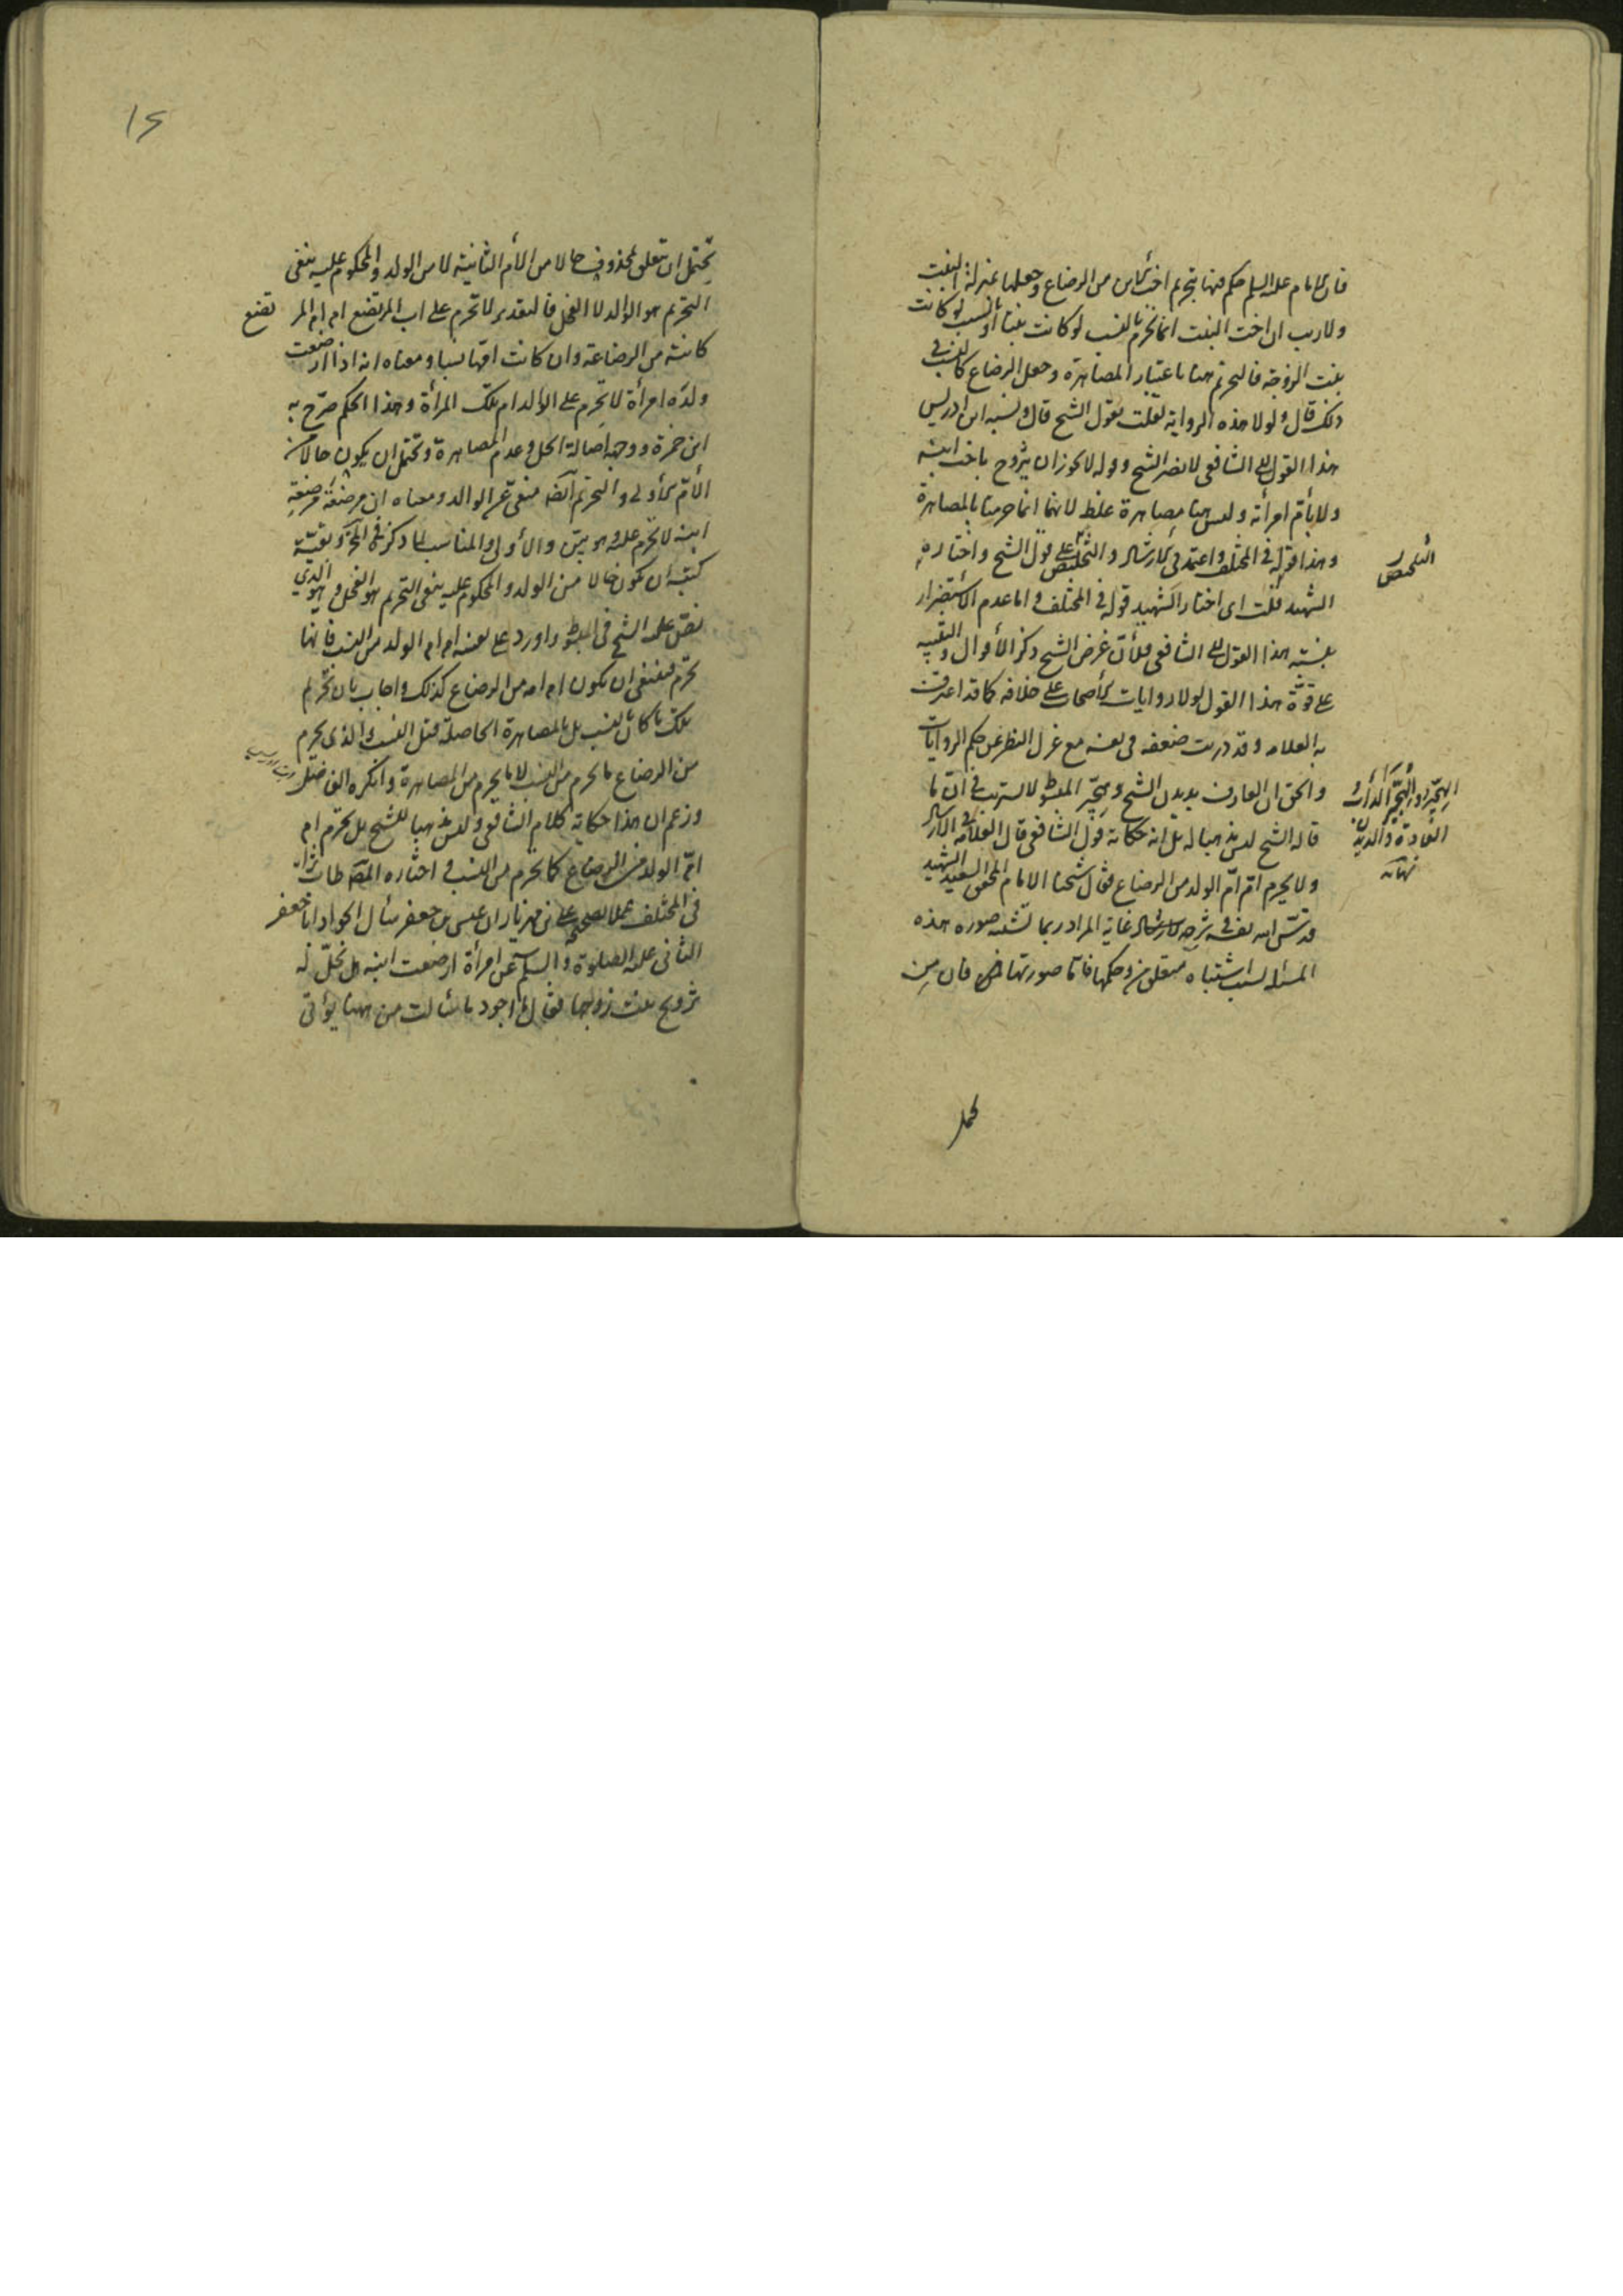 فان الامام عليه السلم حكم فيها بتحريم اخت الابن من الرضاع وجعلها بمنزلة البنت
ولا ريب ان اخت البنت انما تحرم بالنسب لو كانت بنتا او بالسبب لو كانت
بنت الزوجة فالتحريم هنا باعتبار المصاهرة وجعل الرضاع كالنسب في
ذلك قال ولولا هذه الرواية لقلت بقول الشيخ قال ونسبه ابن ادريس
هذا القول الى الشافعي لا يضر الشيخ وقوله لا يجوز ان يتزوج باخت ابنه
ولا بأم امرأته وليس هنا مصاهرة غلط لانهما انما حرمتا بالمصاهرة
وهذا قوله في المختلف واعتمد في الارشاد والتلخيص على قول الشيخ واختاره
التلخيص
الشهيد قلت اى اختار الشهيد قوله في المختلف واما عدم الاستضرار
بنسبة هذا القول الى الشافعي فلأن غرض الشيخ ذكر الأقوال والتنبيه
على قوة هذا القول لولا روايات الأصحاب على خلافه كما قد اعترفت
به العلامه وقد دريت ضعفه في نفسه مع عزل النظر عن حكم الروايات
والحق ان العارف بديدن الشيخ وهجير المبسوط لا يستريب في أن ما
قاله الشيخ ليس مذهبا له بل انه حكاية قول الشافعي قال العلامة في الارشاد
ولا يحرم ام ام الولد من الرضاع فقال شيخنا الامام المحقق السعيد الشهيد
قدس الله نفسه في شرحه للارشاد غاية المراد ربما تشتبه صورة هذه
المسئلة لسبب اشتباه متعلق من وحكمها فاما صورتها فان من
يحتمل
تحتمل ان يتعلق بمحذوف حالا من الأم الثانية لا من الولد والمحكوم عليه بنفى
التحريم هو الوالد لا الفحل فالتقدير لا تحرم على اب المرتضع ام ام المرتضع
كائنة من الرضاعة وان كانت امها نسبا ومعناه انه اذا ارضعت
ولده امرأة لا تحرم على الوالد ام تلك المرأة وهذا الحكم صرح به
ابن حمزة ووجهه اصالة الحل وعدم المصاهرة وتحتمل ان يكون حالا من
الأم الأولى والتحريم ايضا منفى عن الوالد ومعناه ان مرضعة مرضعة
ابنه لا تحرم عليه وهو بين والأولى والمناسب لما ذكر في التحرير وبقية
كتبه ان يكون حالا من الولد والمحكوم عليه بنفى التحريم هو الفحل وهو الذي
نص عليه الشيخ في المبسوط واورد على نفسه ام ام الولد من النسب فانها
تحرم فينبغى ان يكون ام امه من الرضاع كذلك واجاب بان تحريم
تلك ما كان بالنسب بل بالمصاهرة الحاصلة قبل النسب والذى يحرم
من الرضاع ما يحرم من النسب لا ما يحرم من المصاهرة وانكره الفاضل
وزعم ان هذا حكاية كلام الشافعي وليس مذهبا للشيخ بل تحرم ام
ام الولد من الرضاع كما يحرم من النسب واختاره المص طاب ثراه
في المختلف عملا بصحيحة على بن مهزيار ان عيسى بن جعفر سأل الجواد ابا جعفر
الثانى عليه الصلوة والسلم عن امرأة ارضعت ابنه هل تحل له
تزويج بنت زوجها فقال ما اجود ما سألت من ههنا يؤتى